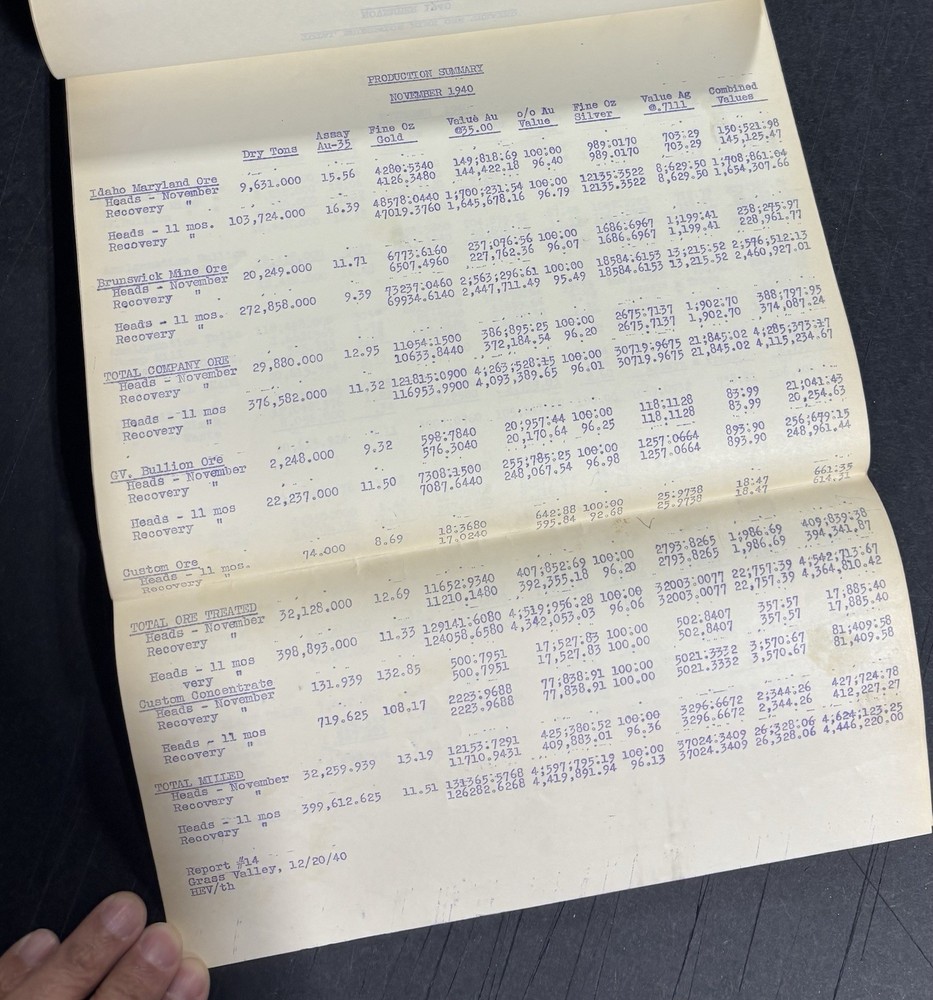 PRODUCTION SUMMARY
NOVEMBER 1940
Dry Tons Assay Au-35 Fine Oz Gold Value Au @35.00 o/o Au Value Fine Oz Silver Value Ag @.7111 Combined Values
Idaho Maryland Ore
Heads - November 9,631.000 15.56 4280.5340 149,818.69 100.00 989.0170 703.29 150,521.98
Recovery " 4126.3480 144,422.18 96.40 989.0170 703.29 145,125.47
Heads - 11 mos. 103,724.000 16.39 48578.0440 1,700,231.54 100.00 12135.3522 8,629.50 1,708,861.04
Recovery " 47019.3760 1,645,678.16 96.79 12135.3522 8,629.50 1,654,307.66
Brunswick Mine Ore
Heads - November 20,249.000 11.71 6773.6160 237,076.56 100.00 1686.6967 1,199.41 238,275.97
Recovery " 6507.4960 227,762.36 96.07 1686.6967 1,199.41 228,961.77
Heads - 11 mos. 272,858.000 9.39 73237.0460 2,563,296.61 100.00 18584.6153 13,215.52 2,576,512.13
Recovery " 69934.6140 2,447,711.49 95.49 18584.6153 13,215.52 2,460,927.01
TOTAL COMPANY ORE
Heads - November 29,880.000 12.95 11054.1500 386,895.25 100.00 2675.7137 1,902.70 388,797.95
Recovery " 10633.8440 372,184.54 96.20 2675.7137 1,902.70 374,087.24
Heads - 11 mos 376,582.000 11.32 121815.0900 4,263,528.15 100.00 30719.9675 21,845.02 4,285,373.17
Recovery " 116953.9900 4,093,389.65 96.01 30719.9675 21,845.02 4,115,234.67
GV. Bullion Ore
Heads - November 2,248.000 9.32 598.7840 20,957.44 100.00 118.1128 83.99 21,041.43
Recovery " 576.3040 20,170.64 96.25 118.1128 83.99 20,254.63
Heads - 11 mos 22,237.000 11.50 7308.1500 255,785.25 100.00 1257.0664 893.90 256,679.15
Recovery " 7087.6440 248,067.54 96.98 1257.0664 893.90 248,961.44
Custom Ore
Heads - 11 mos. 74.000 8.69 18.3680 642.88 100.00 25.9738 18.47 661.35
Recovery " 17.0240 595.84 92.68 25.9738 18.47 614.31
TOTAL ORE TREATED
Heads - November 32,128.000 12.69 11652.9340 407,852.69 100.00 2793.8265 1,986.69 409,839.38
Recovery " 11210.1480 392,355.18 96.20 2793.8265 1,986.69 394,341.87
Heads - 11 mos 398,893.000 11.33 129141.6080 4,519,956.28 100.00 32003.0077 22,757.39 4,542,713.67
very " 124058.6580 4,342,053.03 96.06 32003.0077 22,757.39 4,364,810.42
Custom Concentrate
Heads - November 131.939 132.85 500.7951 17,527.83 100.00 502.8407 357.57 17,885.40
Recovery " 500.7951 17,527.83 100.00 502.8407 357.57 17,885.40
Heads - 11 mos 719.625 108.17 2223.9688 77,838.91 100.00 5021.3332 3,570.67 81,409.58
Recovery " 2223.9688 77,838.91 100.00 5021.3332 3,570.67 81,409.58
TOTAL MILLED
Heads - November 32,259.939 13.19 12153.7291 425,380.52 100.00 3296.6672 2,344.26 427,724.78
Recovery " 11710.9431 409,883.01 96.36 3296.6672 2,344.26 412,227.27
Heads - 11 mos 399,612.625 11.51 131365.5768 4,597,795.19 100.00 37024.3409 26,328.06 4,624,123.25
Recovery " 126282.6268 4,419,891.94 96.13 37024.3409 26,328.06 4,446,220.00
Report #14
Grass Valley, 12/20/40
HEV/th